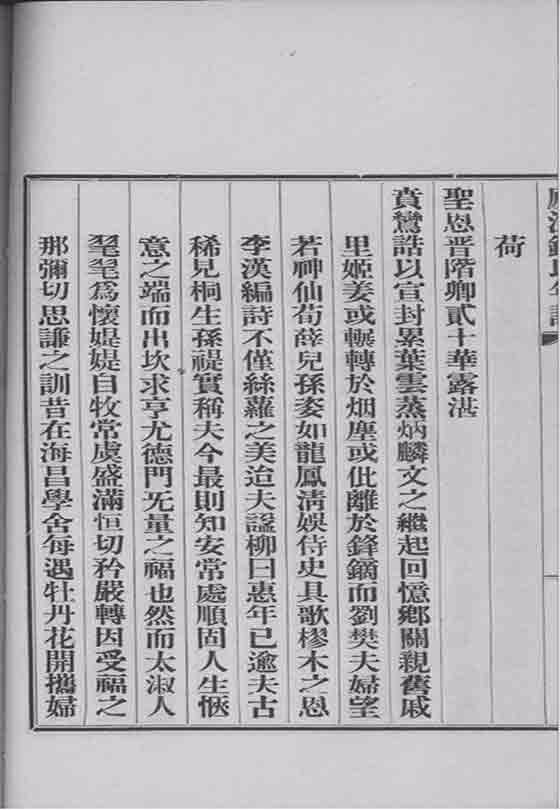 荷
聖恩晉階卿貳十華露湛
賁鸞誥以宣封累葉雲蒸炳麟文之繼起回憶鄉關親舊戚
里姬姜或輾轉於烟塵或仳離於鋒鏑而劉樊夫婦望
若神仙荀薛兒孫姿如龍鳳清娛侍史具歌樛木之恩
李漢編詩不僅絲蘿之美迨夫諡柳曰惠年已逾夫古
稀見桐生孫禔實稱夫今最則知安常處順固人生愜
意之端而出坎求亨尤德門无量之福也然而太淑人
毣毣爲懷媞媞自牧常虞盛滿恒切矜嚴轉因受福之
那彌切思謙之訓昔在海昌學舍每遇牡丹花開攜婦